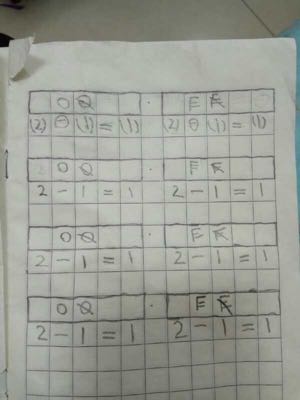 (2) ⊖ (1) = (1) (2) ⊖ (1) = (1)
2 - 1 = 1 2 - 1 = 1
2 - 1 = 1 2 - 1 = 1
2 - 1 = 1 2 - 1 = 1